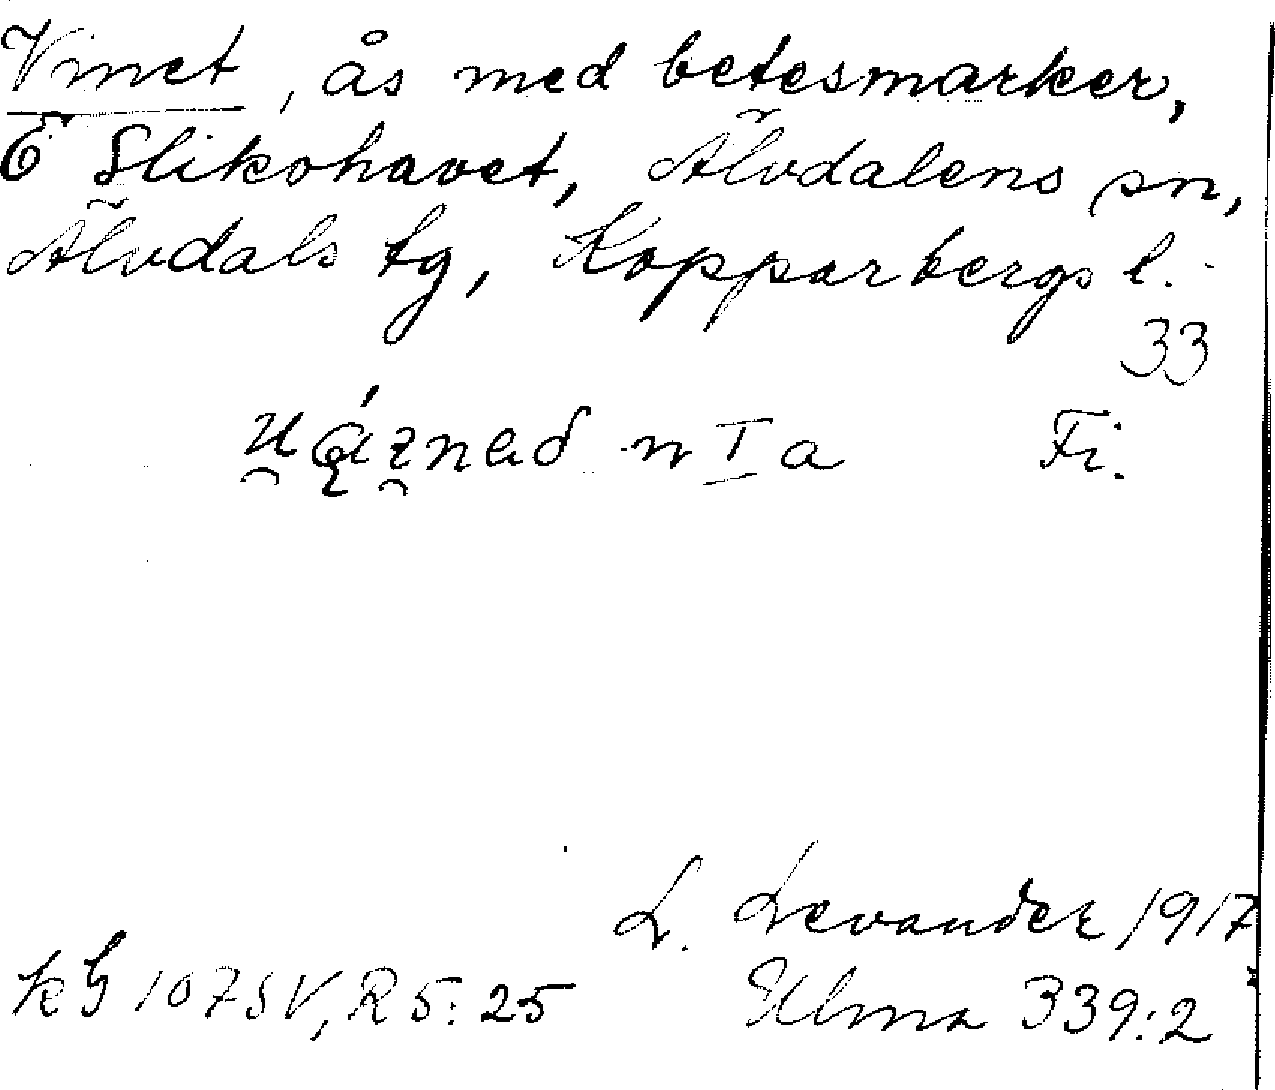 Vinet, ås med betesmarker,
Ö Slikohavet, Älvdalens sn,
Älvdals tg, Kopparbergs l.
33
n I a Fi.
L. Levander 1917
kG 107 SV, R5:25 Ulma 339:2